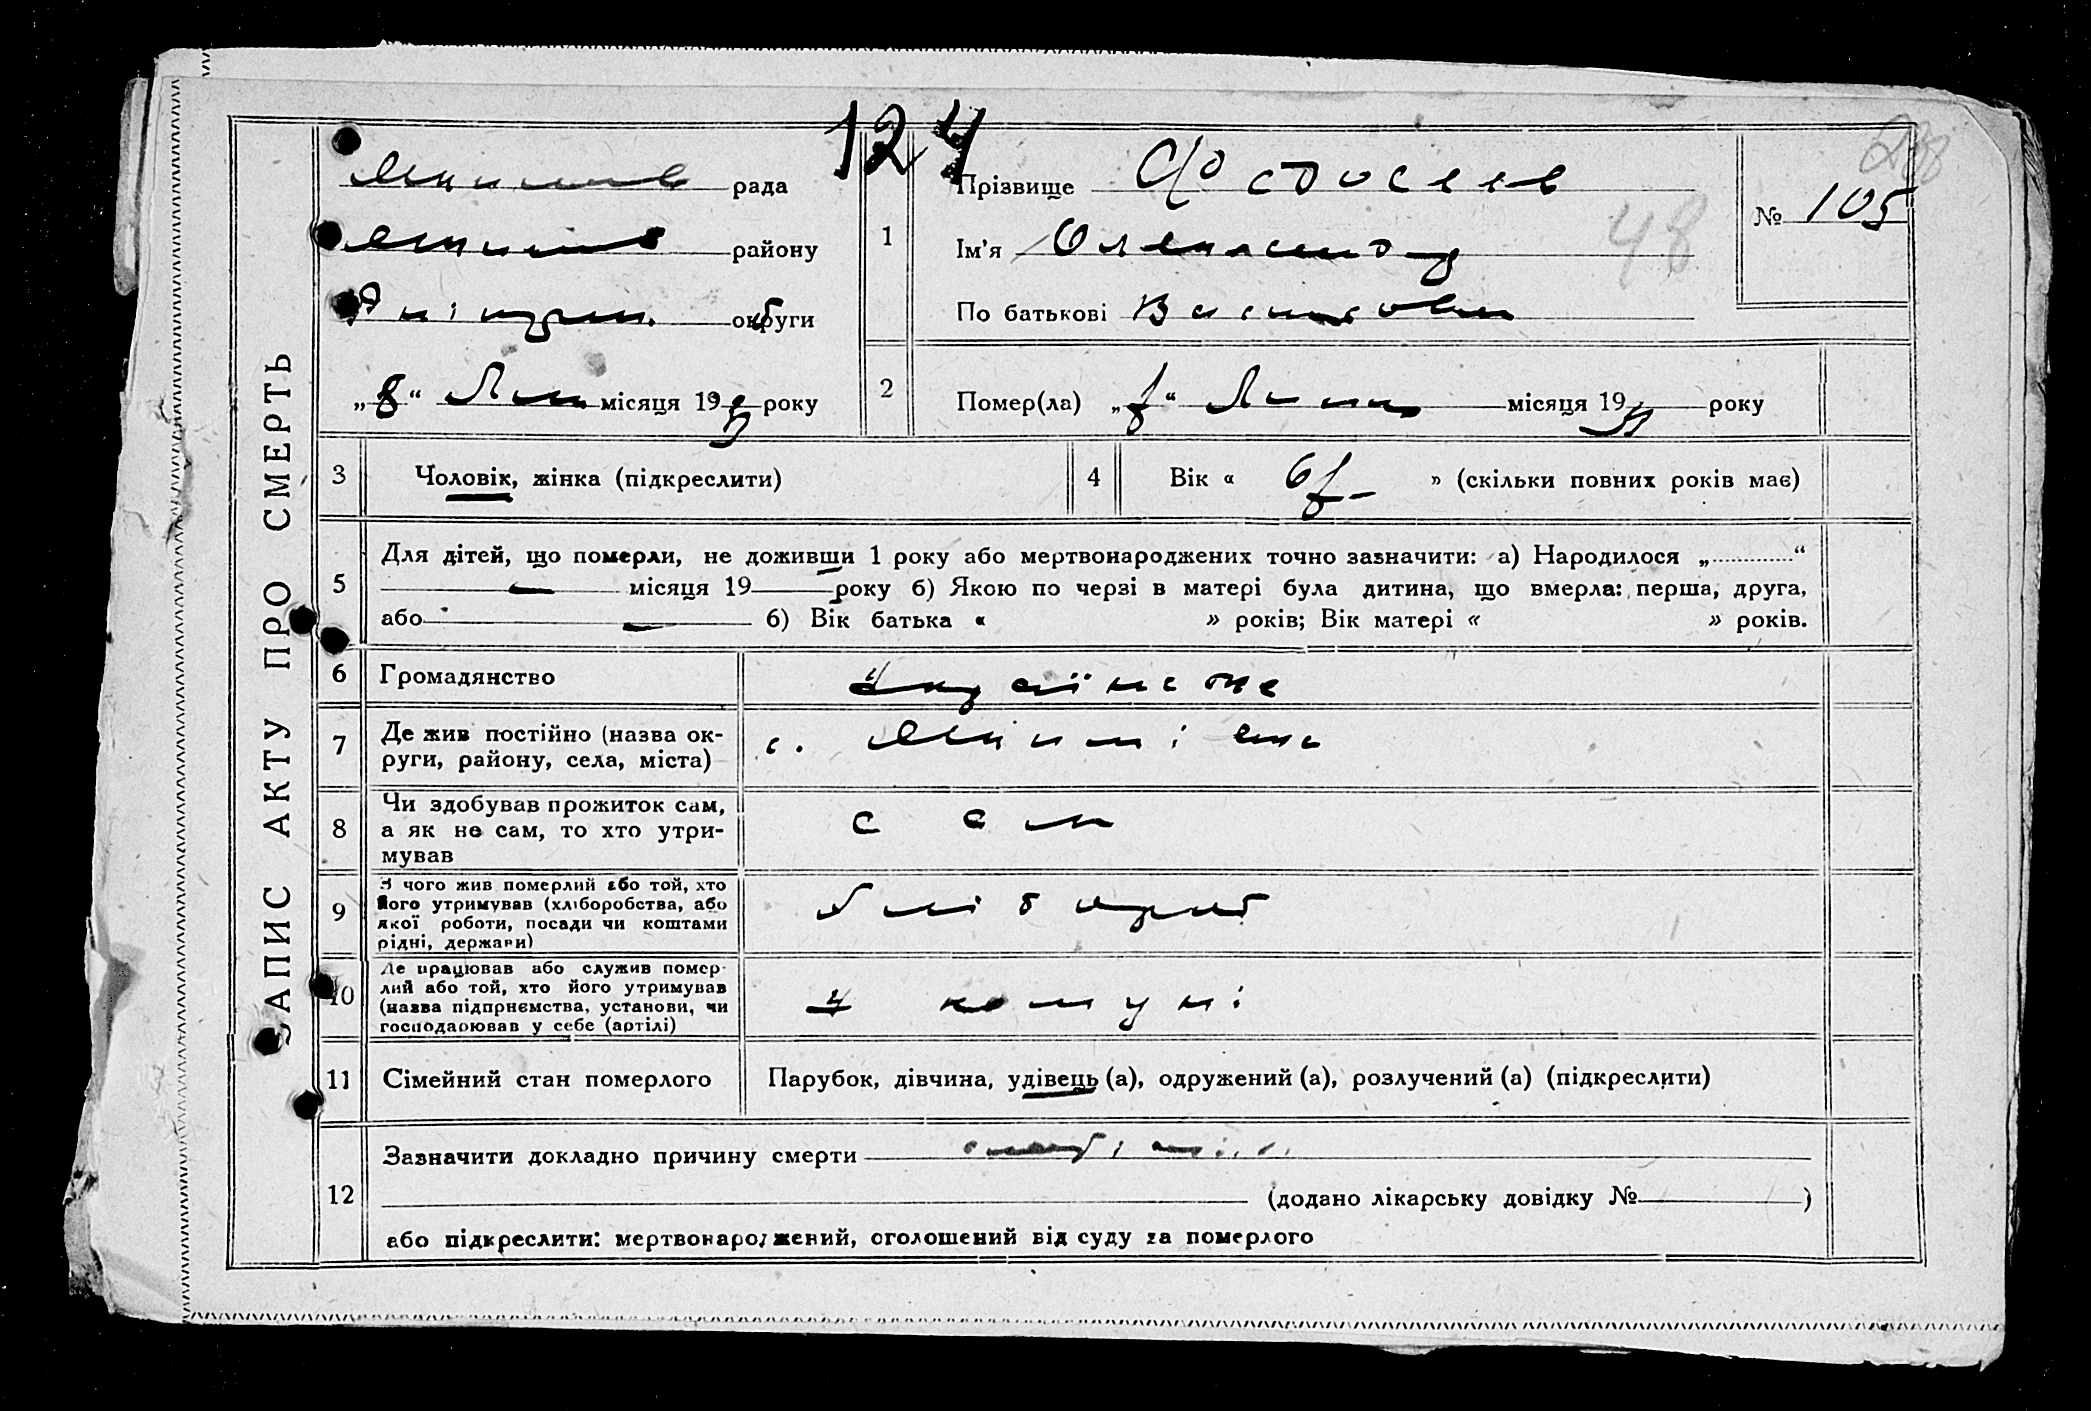 124
238
ЗАПИС АКТУ ПРО СМЕРТЬ
рада
району
округи
„8“ Лип місяця 19 року
1
Прізвище Федосеев
Ім’я Олександр
По батькові Васильович
№ 105
48
2
Помер(ла) „ “ Липня місяця 19 року
3
Чоловік, жінка (підкреслити)
4
Вік « 67 » (скільки повних років має)
5
Для дітей, що померли, не доживши 1 року або мертвонароджених точно зазначити: а) Народилося „ “
місяця 19 року б) Якою по черзі в матері була дитина, що вмерла: перша, друга,
або б) Вік батька « » років; Вік матері « » років.
6
Громадянство
українське
7
Де жив постійно (назва ок-
руги, району, села, міста)
с.
8
Чи здобував прожиток сам,
а як не сам, то хто утри-
мував
сам
9
З чого жив померлий або той, хто
його утримував (хліборобства, або
якої роботи, посади чи коштами
рідні, держави)
хлібороб
10
Де працював або служив помер-
лий або той, хто його утримував
(назва підприємства, установи, чи
господарював у себе (артілі)
у комуні
11
Сімейний стан померлого
Парубок, дівчина, удівець (а), одружений (а), розлучений (а) (підкреслити)
12
Зазначити докладно причину смерти
(додано лікарську довідку № )
або підкреслити: мертвонароджений, оголошений від суду за померлого